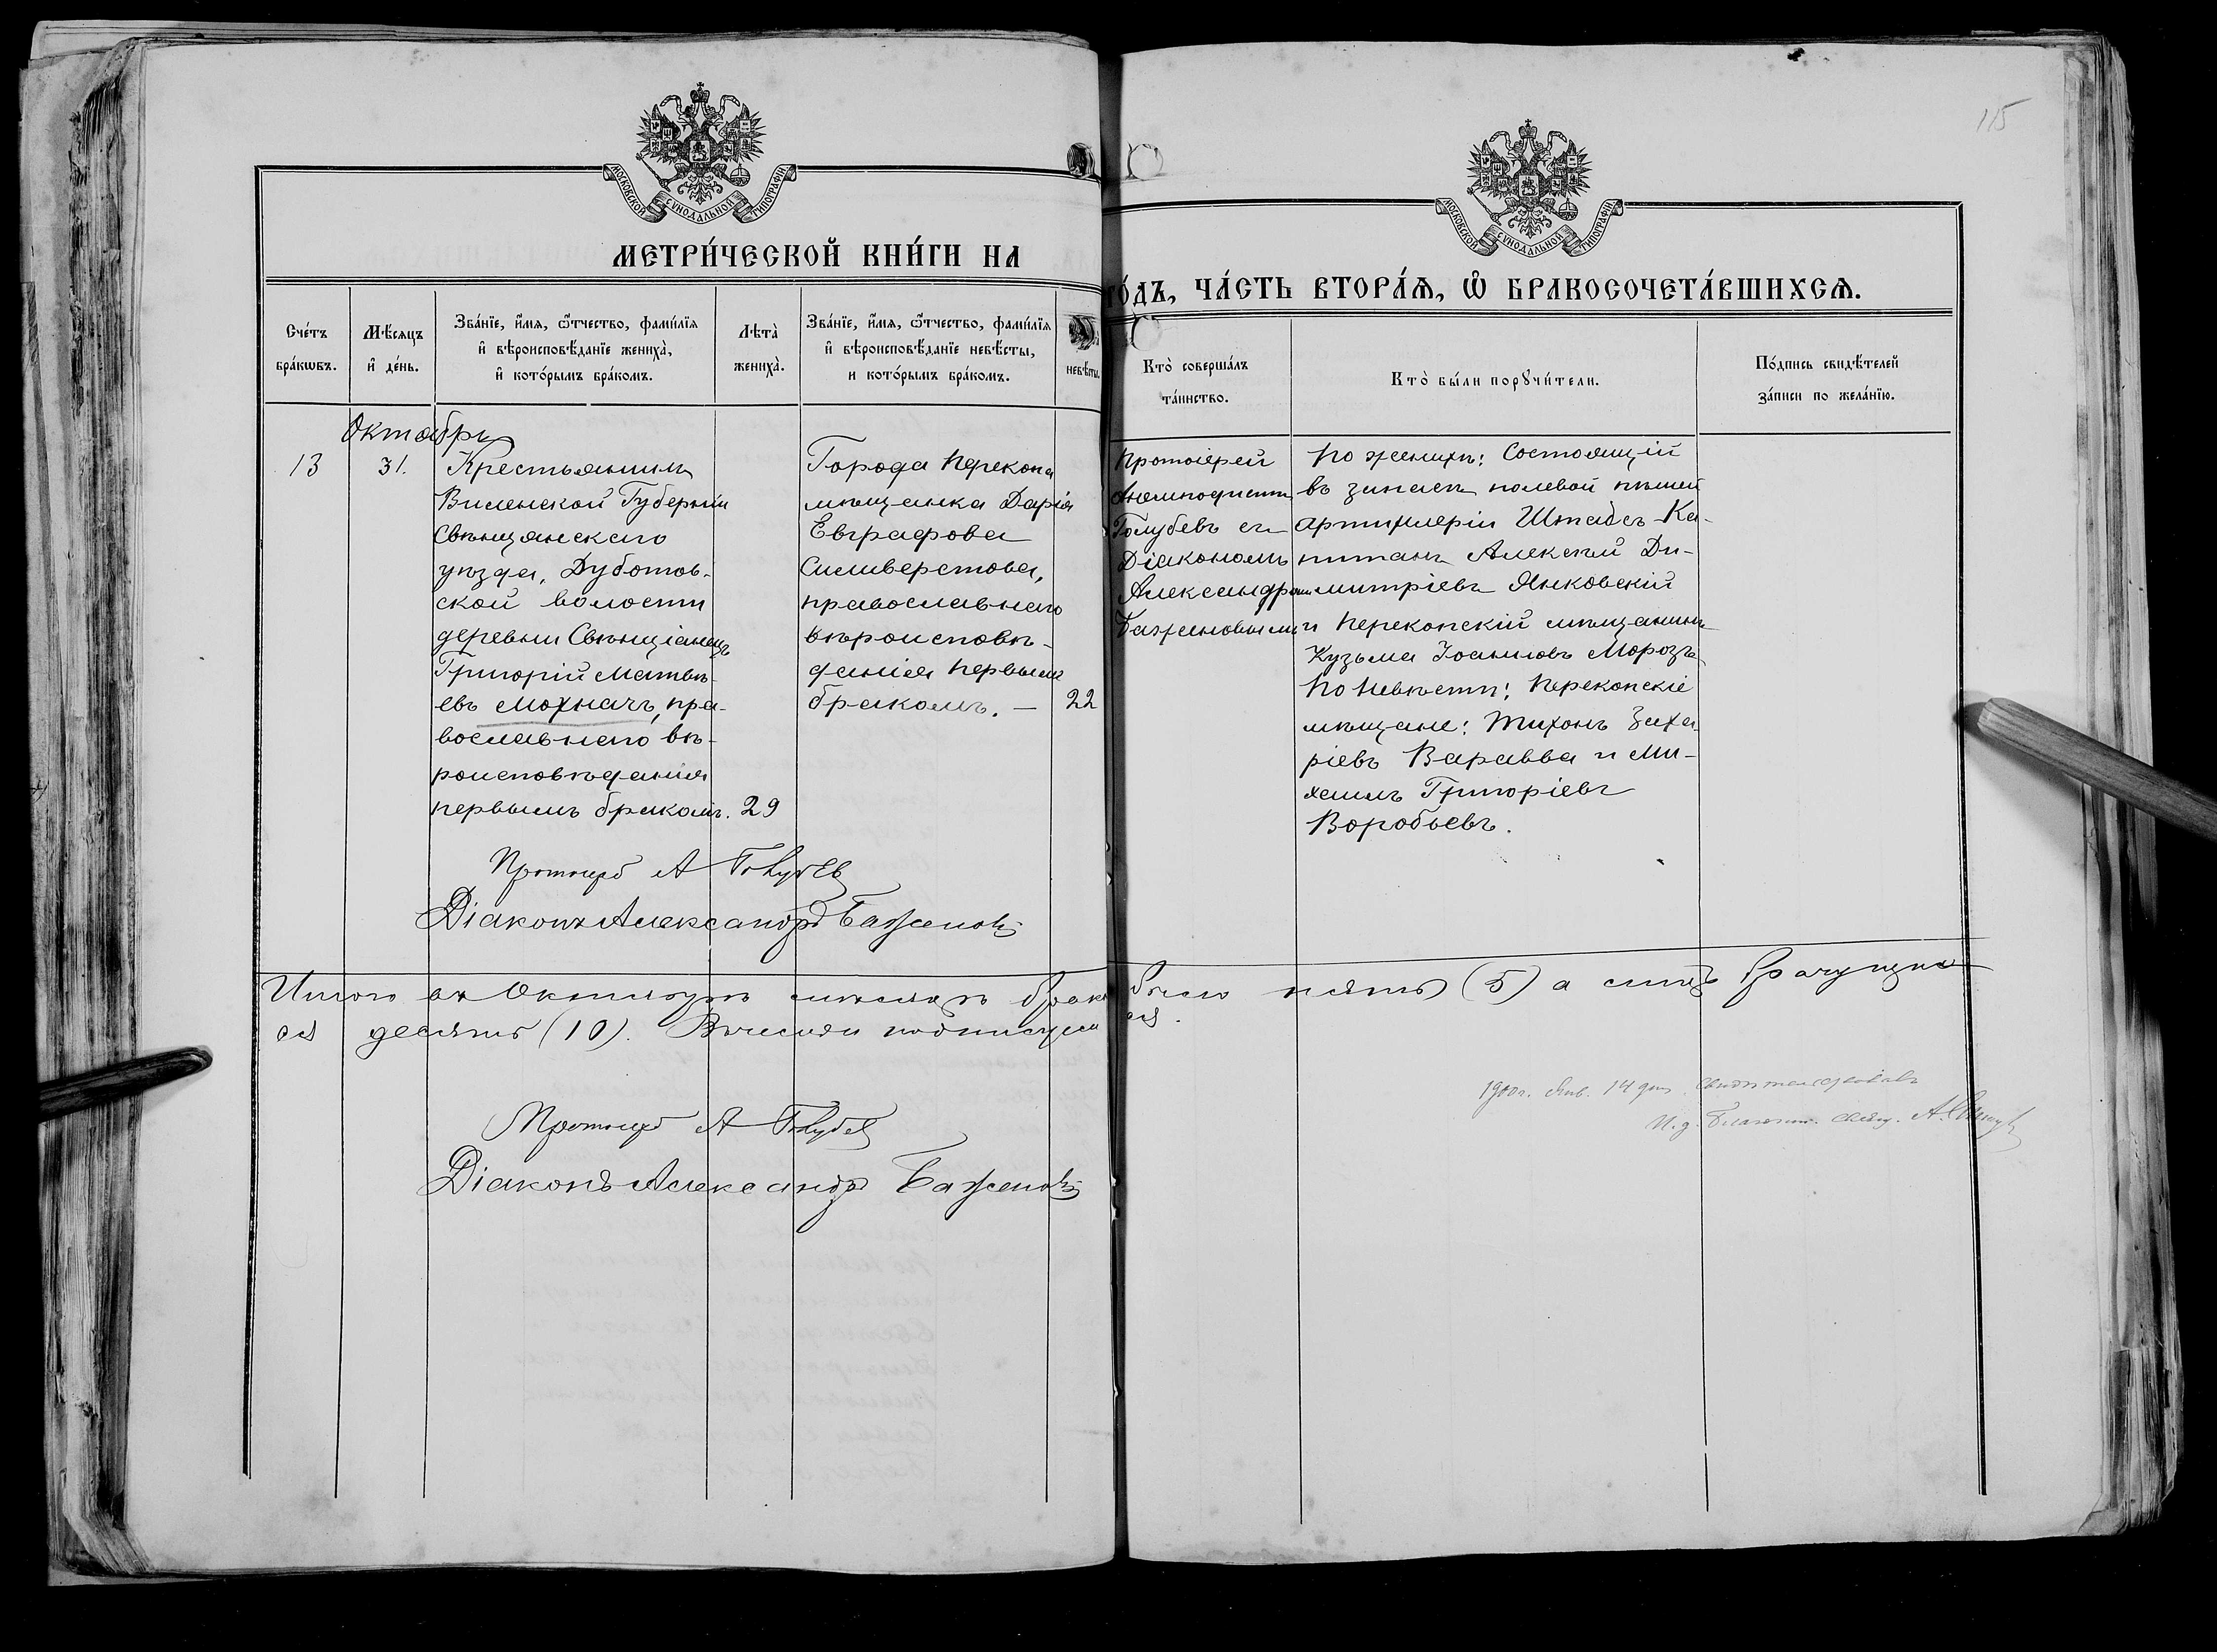 115
МОСКОВСКОЙ СѴНОДАЛЬНОЙ ТИПОГРАФІИ
МОСКОВСКОЙ СѴНОДАЛЬНОЙ ТИПОГРАФІИ
МЕТРИ́ЧЕСКОЙ КНИ́ГИ НА
ГО́ДЪ, ЧА́СТЬ ВТОРА́Ѧ, Ѡ҆ БРАКОСОЧЕТА́ВШИХСѦ.
Сче́тъ
бра́кѡвъ.
Мѣ́сѧцъ
и҆ де́нь.
Зва́нїе, и҆́мѧ, ѻ҆́тчество, фами́лїѧ
и҆ вѣроисповѣ́данїе жениха̀,
и҆ кото́рымъ бра́комъ.
Лѣта̀
жениха̀.
Зва́нїе, и҆́мѧ, ѻ҆́тчество, фами́лїѧ
и҆ вѣроисповѣ́данїе невѣ́сты,
и кото́рымъ бра́комъ.
невѣ́сты.
Кто̀ соверша́лъ
та́инство.
Кто̀ бы́ли порꙋчи́тели.
По́дпись свидѣ́телей
за́писи по жела́нїю.
Октябрь
13
31.
Крестьянинъ
Виленской Губерніи
Свѣнцянскаго
уѣзда, Дуботов-
ской волости
деревни Свѣнціанецъ
Григорій Матвѣ-
евъ Мохначъ, пра-
вославнаго вѣ-
роисповѣданія
первымъ бракомъ. 29
Города Перекопа
мѣщанка Дарія
Евграфова
Силиверстова,
православнаго
вѣроисповѣ-
данія первымъ
бракомъ. — 22
Протоіерей
Голубевъ съ
Діакономъ
Александромъ
Баженовымъ
По женихѣ: Состоящій
въ запасѣ полевой пѣшей
артиллеріи Штабсъ-Ка-
питанъ Алексѣй Ди-
митріевъ Янковскій
и Перекопскій мѣщанинъ
Кузьма Іоанновъ Морозъ.
По невѣстѣ: Перекопскіе
мѣщане: Тихонъ Заха-
ріевъ Варавва и Ми-
хаилъ Григоріевъ
Воробьевъ.
Протоіерей А Голубев
Діаконъ Александръ Баженовъ
Итого въ Октябрѣ мѣсяцѣ брак было пять (5) а лицъ брачущих
ся десять (10). В чемъ и подписуемся.
Протоіерей А Голубев
Діаконъ Александръ Баженовъ
1900 г. Янв. 14 дня. свидѣтельствовалъ
И. д. Благочин. Свящ. А.